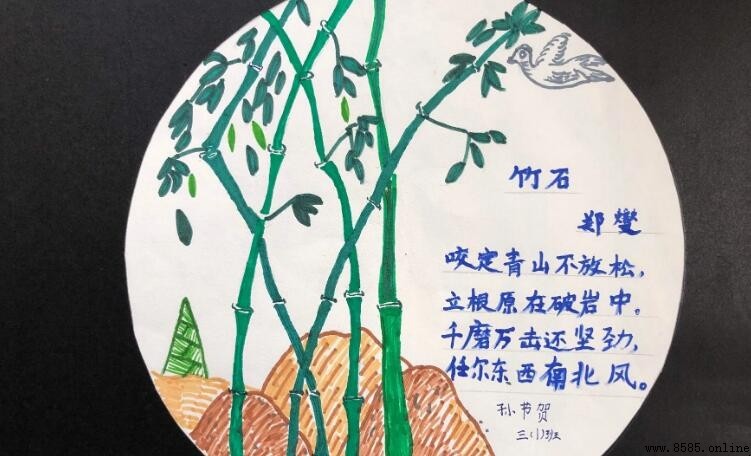 竹石
郑燮
咬定青山不放松，
立根原在破岩中。
千磨万击还坚劲，
任尔东西南北风。
孙节贺
三(1)班
www.8585.online